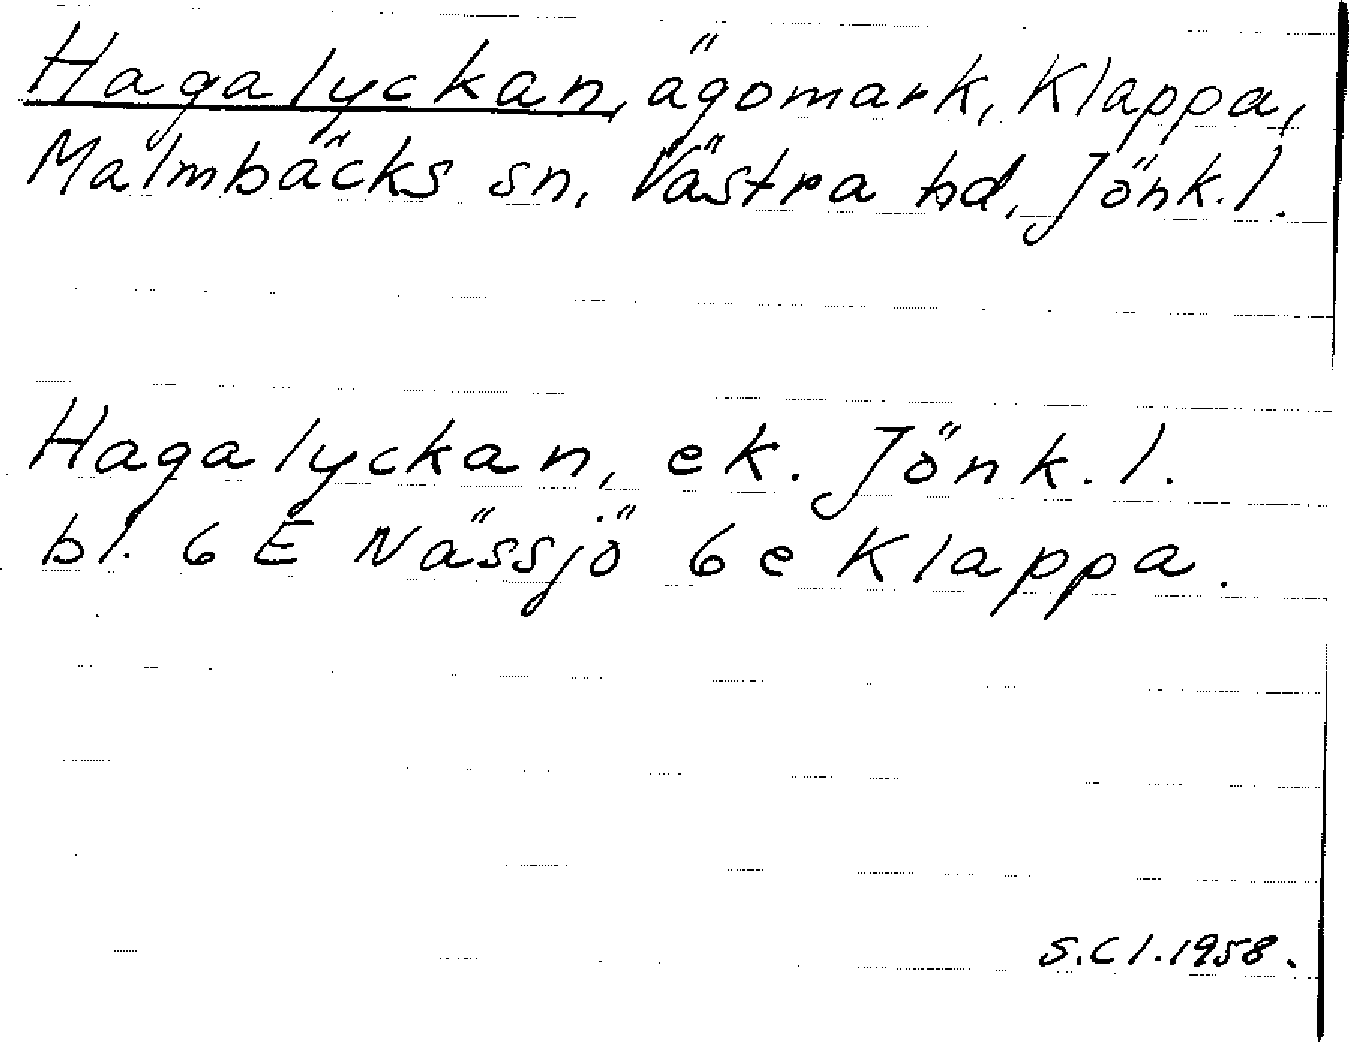 Hagalyckan, ägomark, Klappa,
Malmbäcks sn, Västra hd, Jönk.l.
Hagalyckan, ek. Jönk.l.
bl. 6 E Nässjö 6e Klappa.
S.Cl.1958.